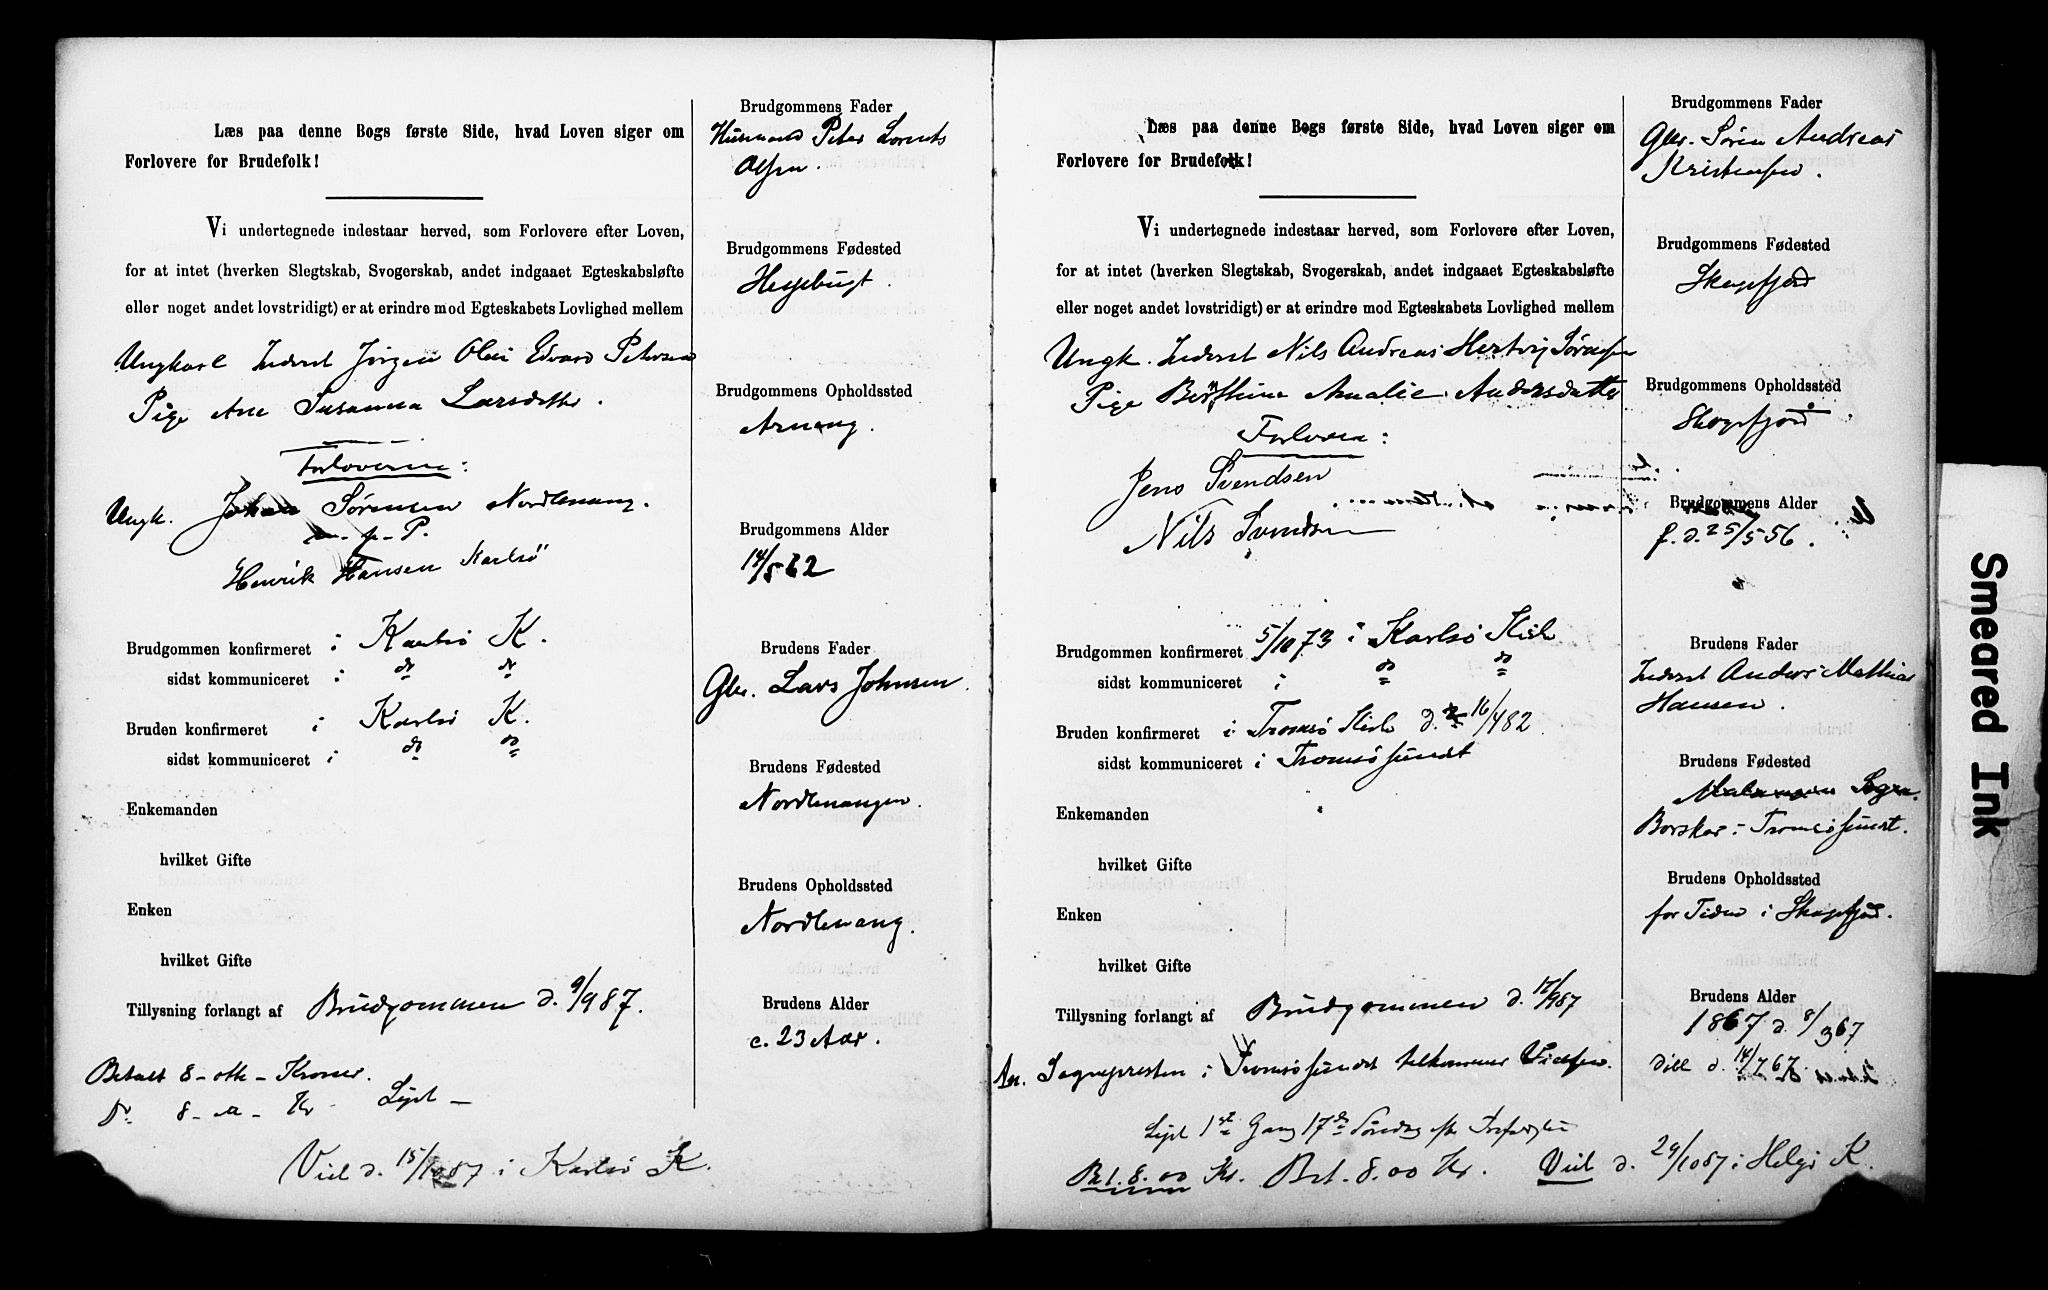 Læs paa denne Bogs første Side, hvad Loven siger om
Forlovere for Brudefolk!
Vi undertegnede indestaar herved, som Forlovere efter Loven,
for at intet (hverken Slegtskab, Svogerskab, andet indgaaet Egteskabsløfte
eller noget andet lovstridigt) er at erindre mod Egteskabets Lovlighed mellem
Ungkarl Inderst Jørgen Olai Edvard Petersen
Pige Ane Susanna Larsdatter.
Forloverne:
Ungk. Johan Sørensen Nordlenang.
m. p. P.
Henrik Hansen Karlsö
Brudgommen konfirmeret i Karlsø K.
sidst kommuniceret i do do
Bruden konfirmeret i Karlsø K.
sidst kommuniceret i do do
Enkemanden
hvilket Gifte
Enken
hvilket Gifte
Tillysning forlangt af Brudgommen d. 9/987.
Betalt 8 - otte - Kroner.
Do 8 - Kr Lyst
Viet d. 15/1087 i Karlsø K.
Brudgommens Fader
Husmand Peter Lorents
Olsen.
Brudgommens Fødested
Hessebugt.
Brudgommens Opholdssted
Arnang.
Brudgommens Alder
14/562
Brudens Fader
Gbr. Lars Johnsen.
Brudens Fødested
Nordlenangen.
Brudens Opholdssted
Nordlenang.
Brudens Alder
c. 23 Aar.
Læs paa denne Bogs første Side, hvad Loven siger om
Forlovere for Brudefolk!
Vi undertegnede indestaar herved, som Forlovere efter Loven,
for at intet (hverken Slegtskab, Svogerskab, andet indgaaet Egteskabsløfte
eller noget andet lovstridigt) er at erindre mod Egteskabets Lovlighed mellem
Ungk. Inderst Nils Andreas Hertvig Sørensen
Pige Berthine Amalie Andersdatter
Forlovere:
Jens Svendsen
Nils Svendsen
Brudgommen konfirmeret 5/1073 i Karlsø Kirke
sidst kommuniceret i do do
Bruden konfirmeret i Tromsø Kirke d. 16/482
sidst kommuniceret i Tromsøsundet
Enkemanden
hvilket Gifte
Enken
hvilket Gifte
Tillysning forlangt af Brudgommen d. 17/987
An. Sognepresten i Tromsøsundet tilkommer Vielsen.
Lyst 1ste Gang 17de Søndag eft. Trefoldighed
Bet. 8.00 Kr. Bet. 8.00 Kr. Viet d. 29/1087 i Helgø K.
Brudgommens Fader
Gbr. Søren Andreas
Kristensen.
Brudgommens Fødested
Skogsfjord
Brudgommens Opholdssted
Skogsfjord
Brudgommens Alder
f. d. 25/556.
Brudens Fader
Inderst Anders Mathias
Hansen.
Brudens Fødested
Malangen Sogn.
i Tromsøsundet.
Brudens Opholdssted
for Tiden i Skogsfjord.
Brudens Alder
1867 d. 8/367
døbt d. 14/767.
Smeared Ink